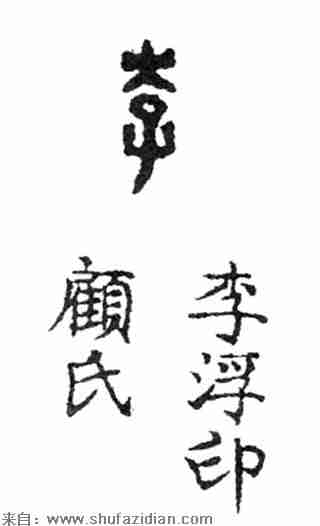 李
李浮印
顧氏
来自：www.shufazidian.com